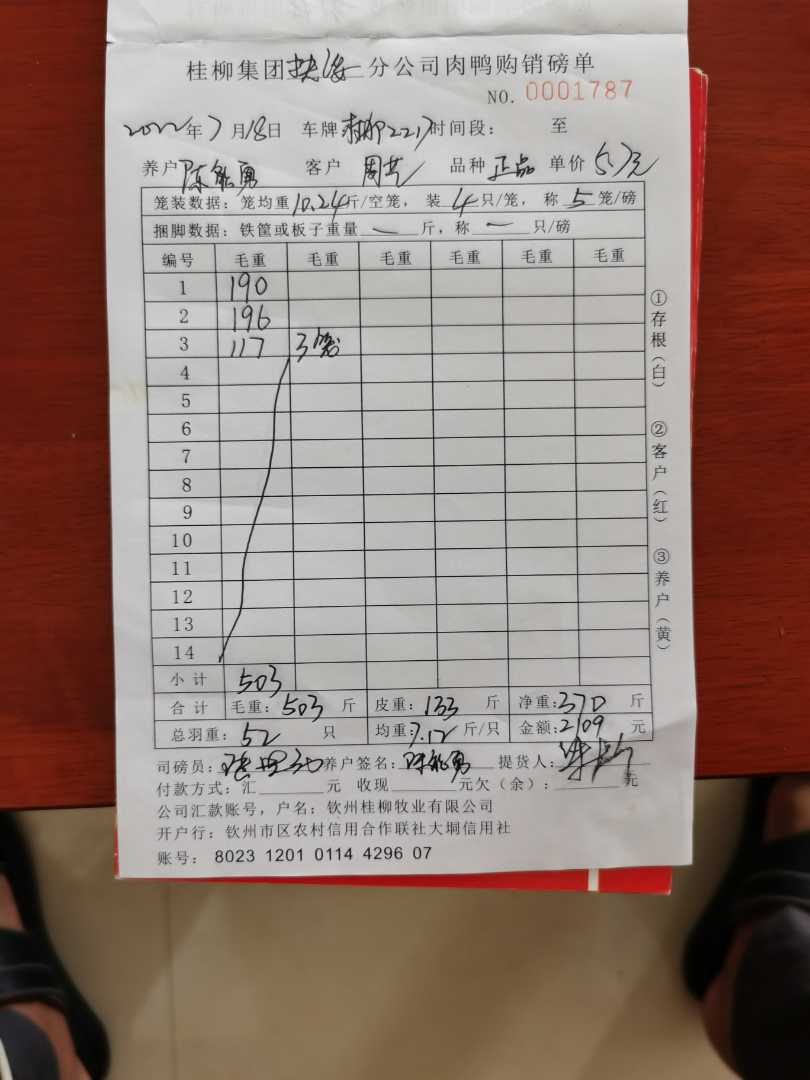 桂柳集团扶绥分公司肉鸭购销磅单
NO. 0001787
2022年7月18日 车牌 2217时间段: 至
养户 陈能勇 客户 周艺 品种 正品 单价 5.7元
笼装数据: 笼均重10.24斤/空笼, 装4只/笼, 称5笼/磅
捆脚数据: 铁筐或板子重量 一 斤, 称 一 只/磅
编号 毛重 毛重 毛重 毛重 毛重 毛重
1 190
2 196
3 117 3笼
4
5
6
7
8
9
10
11
12
13
14
小计 503
合计 毛重: 503 斤 皮重: 133 斤 净重: 370 斤
总羽重: 52 只 均重: 7.12 斤/只 金额: 2109 元
司磅员: 养户签名: 陈能勇 提货人:
付款方式: 汇 元 收现 元欠(余): 元
公司汇款账号, 户名: 钦州桂柳牧业有限公司
开户行: 钦州市区农村信用合作联社大垌信用社
账号: 8023 1201 0114 4296 07
①存根(白)
②客户(红)
③养户(黄)